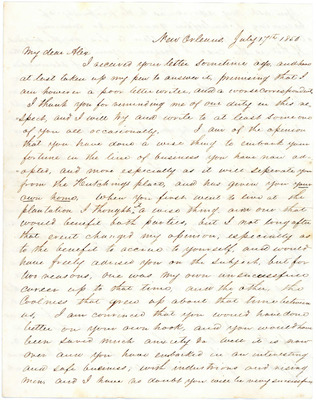 New Orleans July 17th 1850
My dear Alex
I received your letter sometime ago, and have
at last taken up my pen to answer it, promising that I
am however a poor letter writer, and a worse correspondent
I thank you for reminding me of our duty in this re-
spect, and I will try and write to at least some one
of you all occasionally. I am of the opinion
that you have done a wise thing to embark your
fortune in the line of business you have now ad-
opted, and more especially as it will seperate you
from the Hutchings place, and has given you your
own home. When you first went to live at the
plantation I thought a wise thing, and one that
would benefit both parties, but I not long after
that event changed my opinion, especially as
to the benefit to accrue to yourself, and would
have freely advised you on the subject, but for
two reasons, one was my own unsuccessful
career up to that time, and the other the
coolness that grew up about that time between
us, I am convinced that you would have done
better on your own hook, and you would have
been saved much anxiety &c well it is now
over and you have embarked in an interesting
and safe business, with industrious and rising
men and I have no doubt you will be very successful